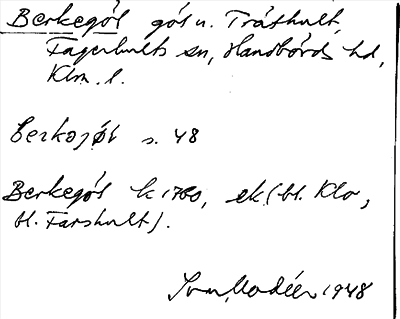 Berkegöl göl u. Tråthult,
Fagerhults sn, Handbörds hd,
Klm. l.
berkogøl s. 48
Berkegöl k 1760, ek. (bl. Klo,
bl. Farshult).
Ivar Modéer 1948